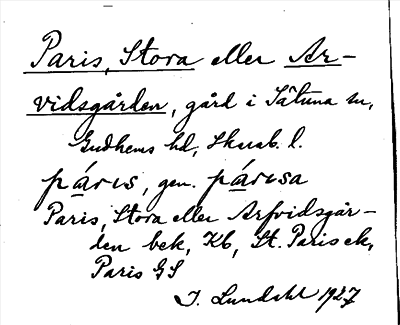 Paris, Stora eller Ar-
vidsgården, gård i Såtuna sn,
Gudhems hd, Skarab. l.
páris, gen. párisa
Paris, Stora eller Arfvidsgår-
den bek, Kb, St. Paris ek,
Paris GS
I. Lundahl 1927